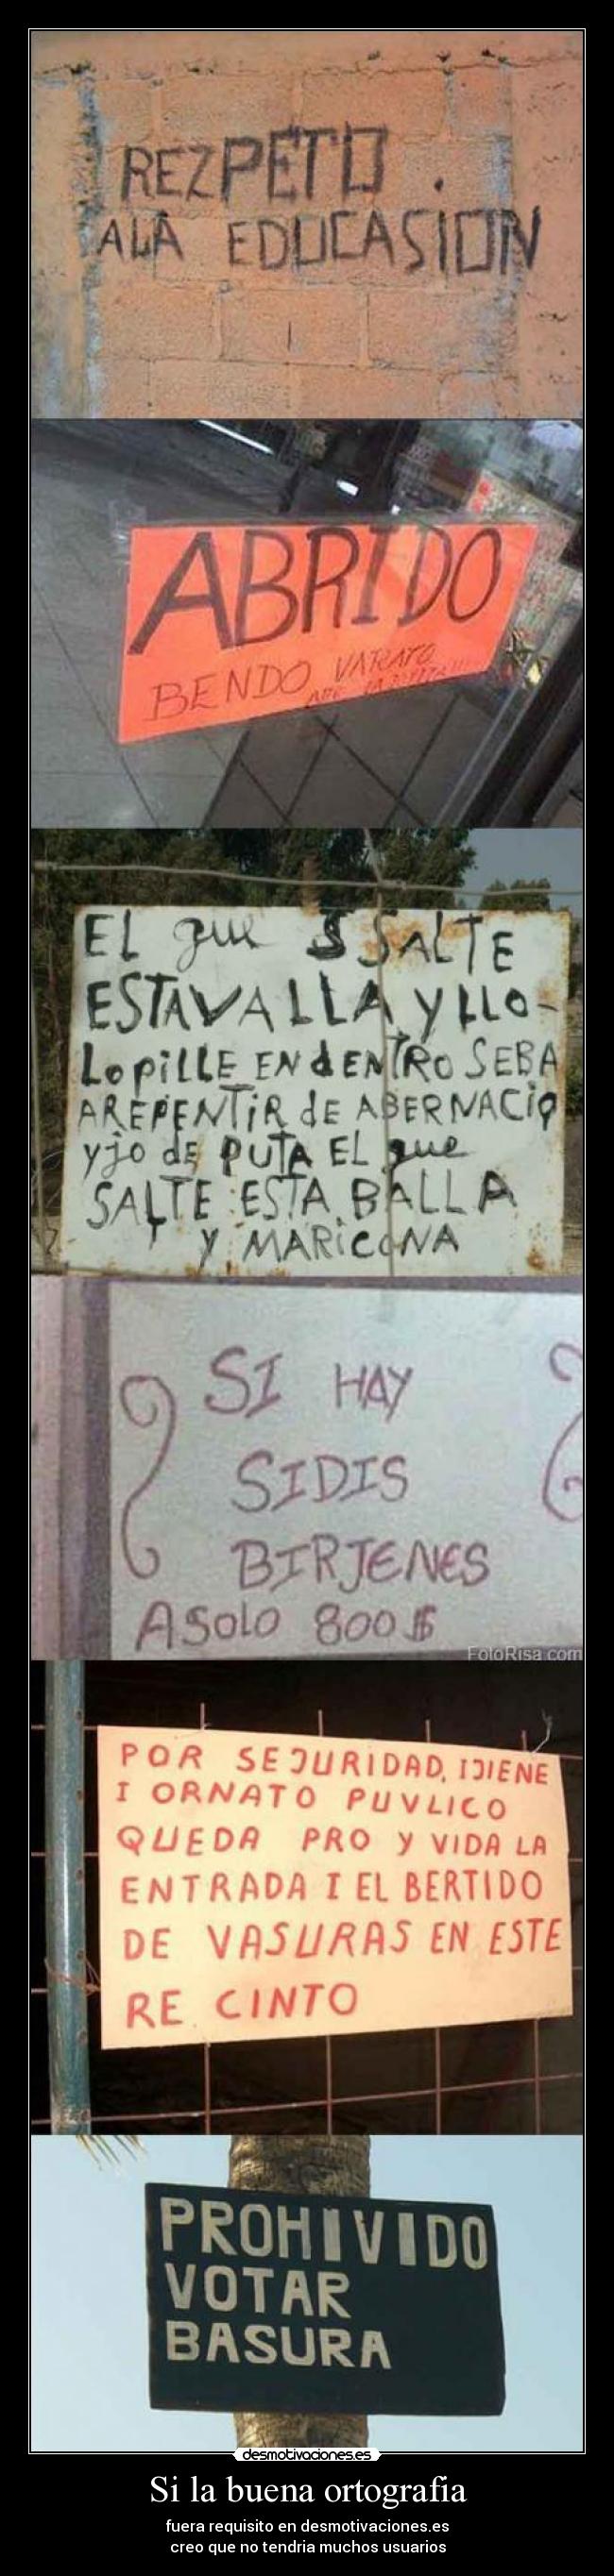 REZPETO.
ALA EDUCASION
ABRIDO
BENDO VARATO
EL que S SALTE
ESTAVALLA Y LLO-
LO PILLE EN dENTRO SEBA
AREPENTIR dE ABERNACIO
yjo dE PUTA EL que
SALTE ESTA BALLA
Y MARICONA
SI HAY
SIDIS
BIRJENES
A SOLO 800$
FotoRisa.com
POR SEJURIDAD, IJIENE
I ORNATO PUVLICO
QUEDA PRO Y VIDA LA
ENTRADA I EL BERTIDO
DE VASURAS EN ESTE
RE CINTO
PROHIVIDO
VOTAR
BASURA
desmotivaciones.es
Si la buena ortografia
fuera requisito en desmotivaciones.es
creo que no tendria muchos usuarios